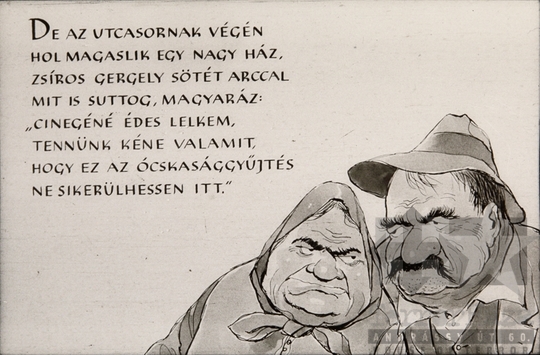 DE AZ UTCASORNAK VÉGÉN
HOL MAGASLIK EGY NAGY HÁZ,
ZSÍROS GERGELY SÖTÉT ARCCAL
MIT IS SUTTOG, MAGYARÁZ:
„CINEGÉNÉ ÉDES LELKEM,
TENNÜNK KÉNE VALAMIT,
HOGY EZ AZ ÓCSKASÁGGYŰJTÉS
NE SIKERÜLHESSEN ITT."
ANDRÁSSY ÚT 60.